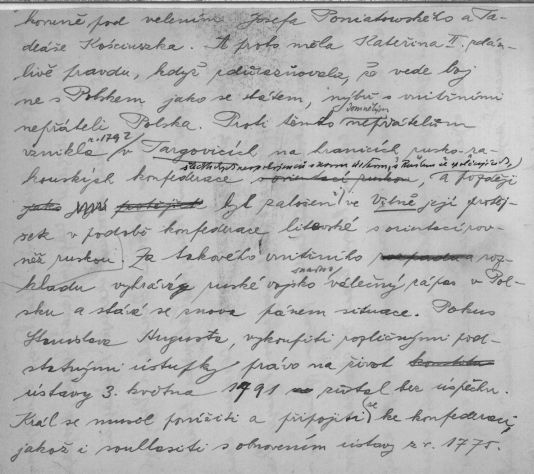 koruně pod velením Josefa Poniatowského a Ta-
deáše Kościuszka. A proto měla Kateřina II. zdán-
livě pravdu, když zdůrazňovala, že vede boj
ne s Polskem jako se státem, nýbrž s vnitřními
nepřáteli Polska. Proti těmto domnělým nepřátelům
vznikla r. 1792 v Targovicích na hranicích rusko-ra-
kouských konfederace orientací ruskou, a později
jako byl založen ve Vilně její protěj-
šek v podobě konfederace litevské s orientací rov-
něž ruskou. Za takového vnitřního roz-
kladu vyhrává ruské vojsko snadno válečný zápas v Pol-
sku a stává se znova pánem situace. Pokus
Stanislava Augusta, vykoupiti rozličnými pod-
statnými ústupky právo na život
ústavy 3. května 1791 zůstal bez úspěchu.
Král se musel ponížiti a připojiti se ke konfederaci,
jakož i souhlasiti s obnovením ústavy z r. 1775.